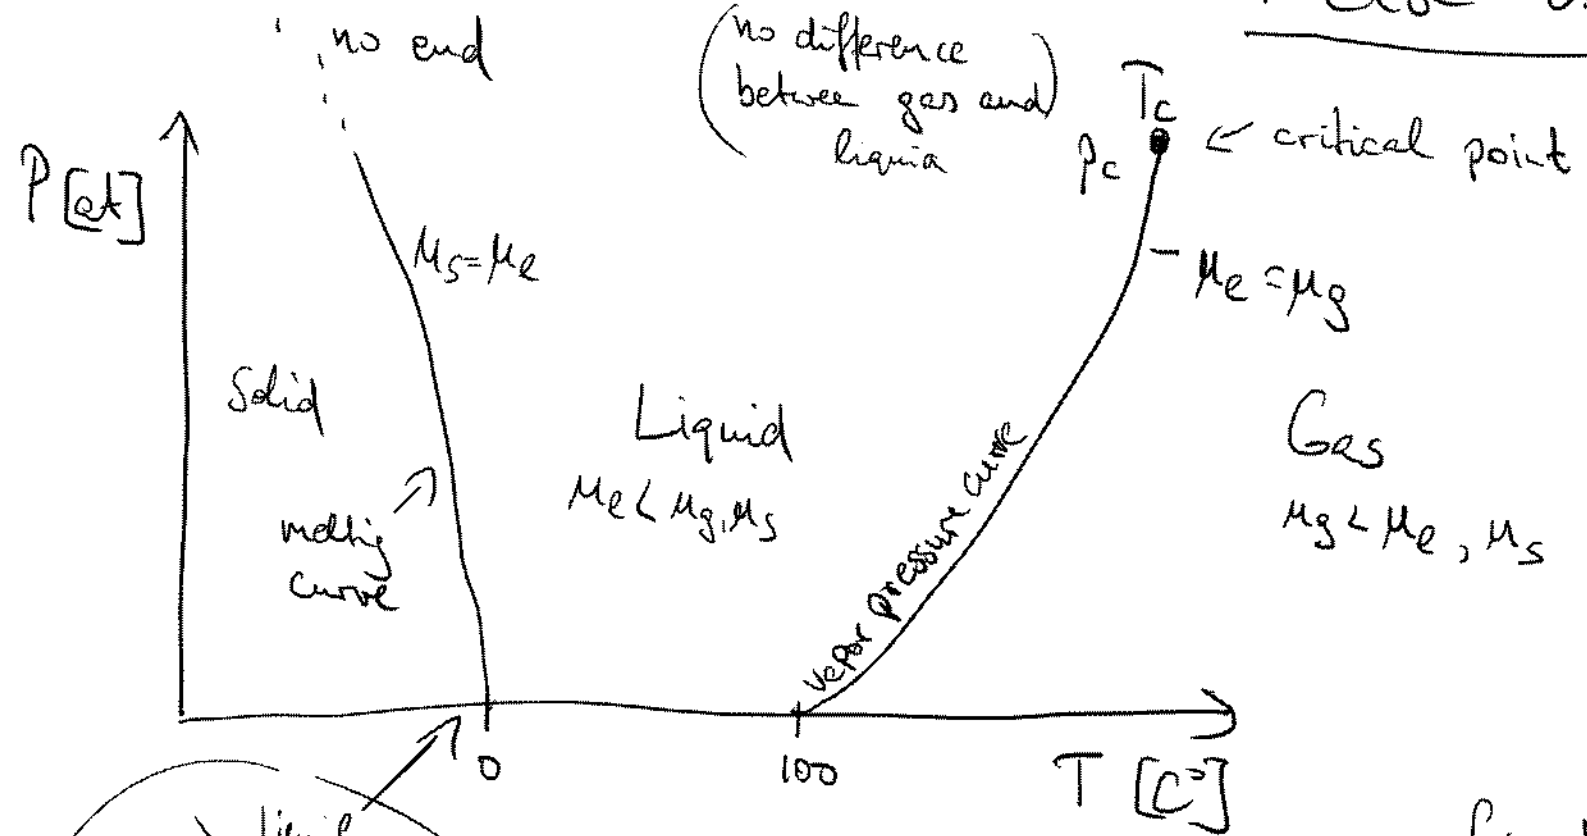 no end
(no difference
betwee gas and)
liquid
Tc
Pc
← critical point
P [at]
μs=μe
– μe = μg
Solid
Liquid
μe < μg, μs
Gas
μg < μe, μs
melting
curve
vapor pressure curve
0
100
T [C°]